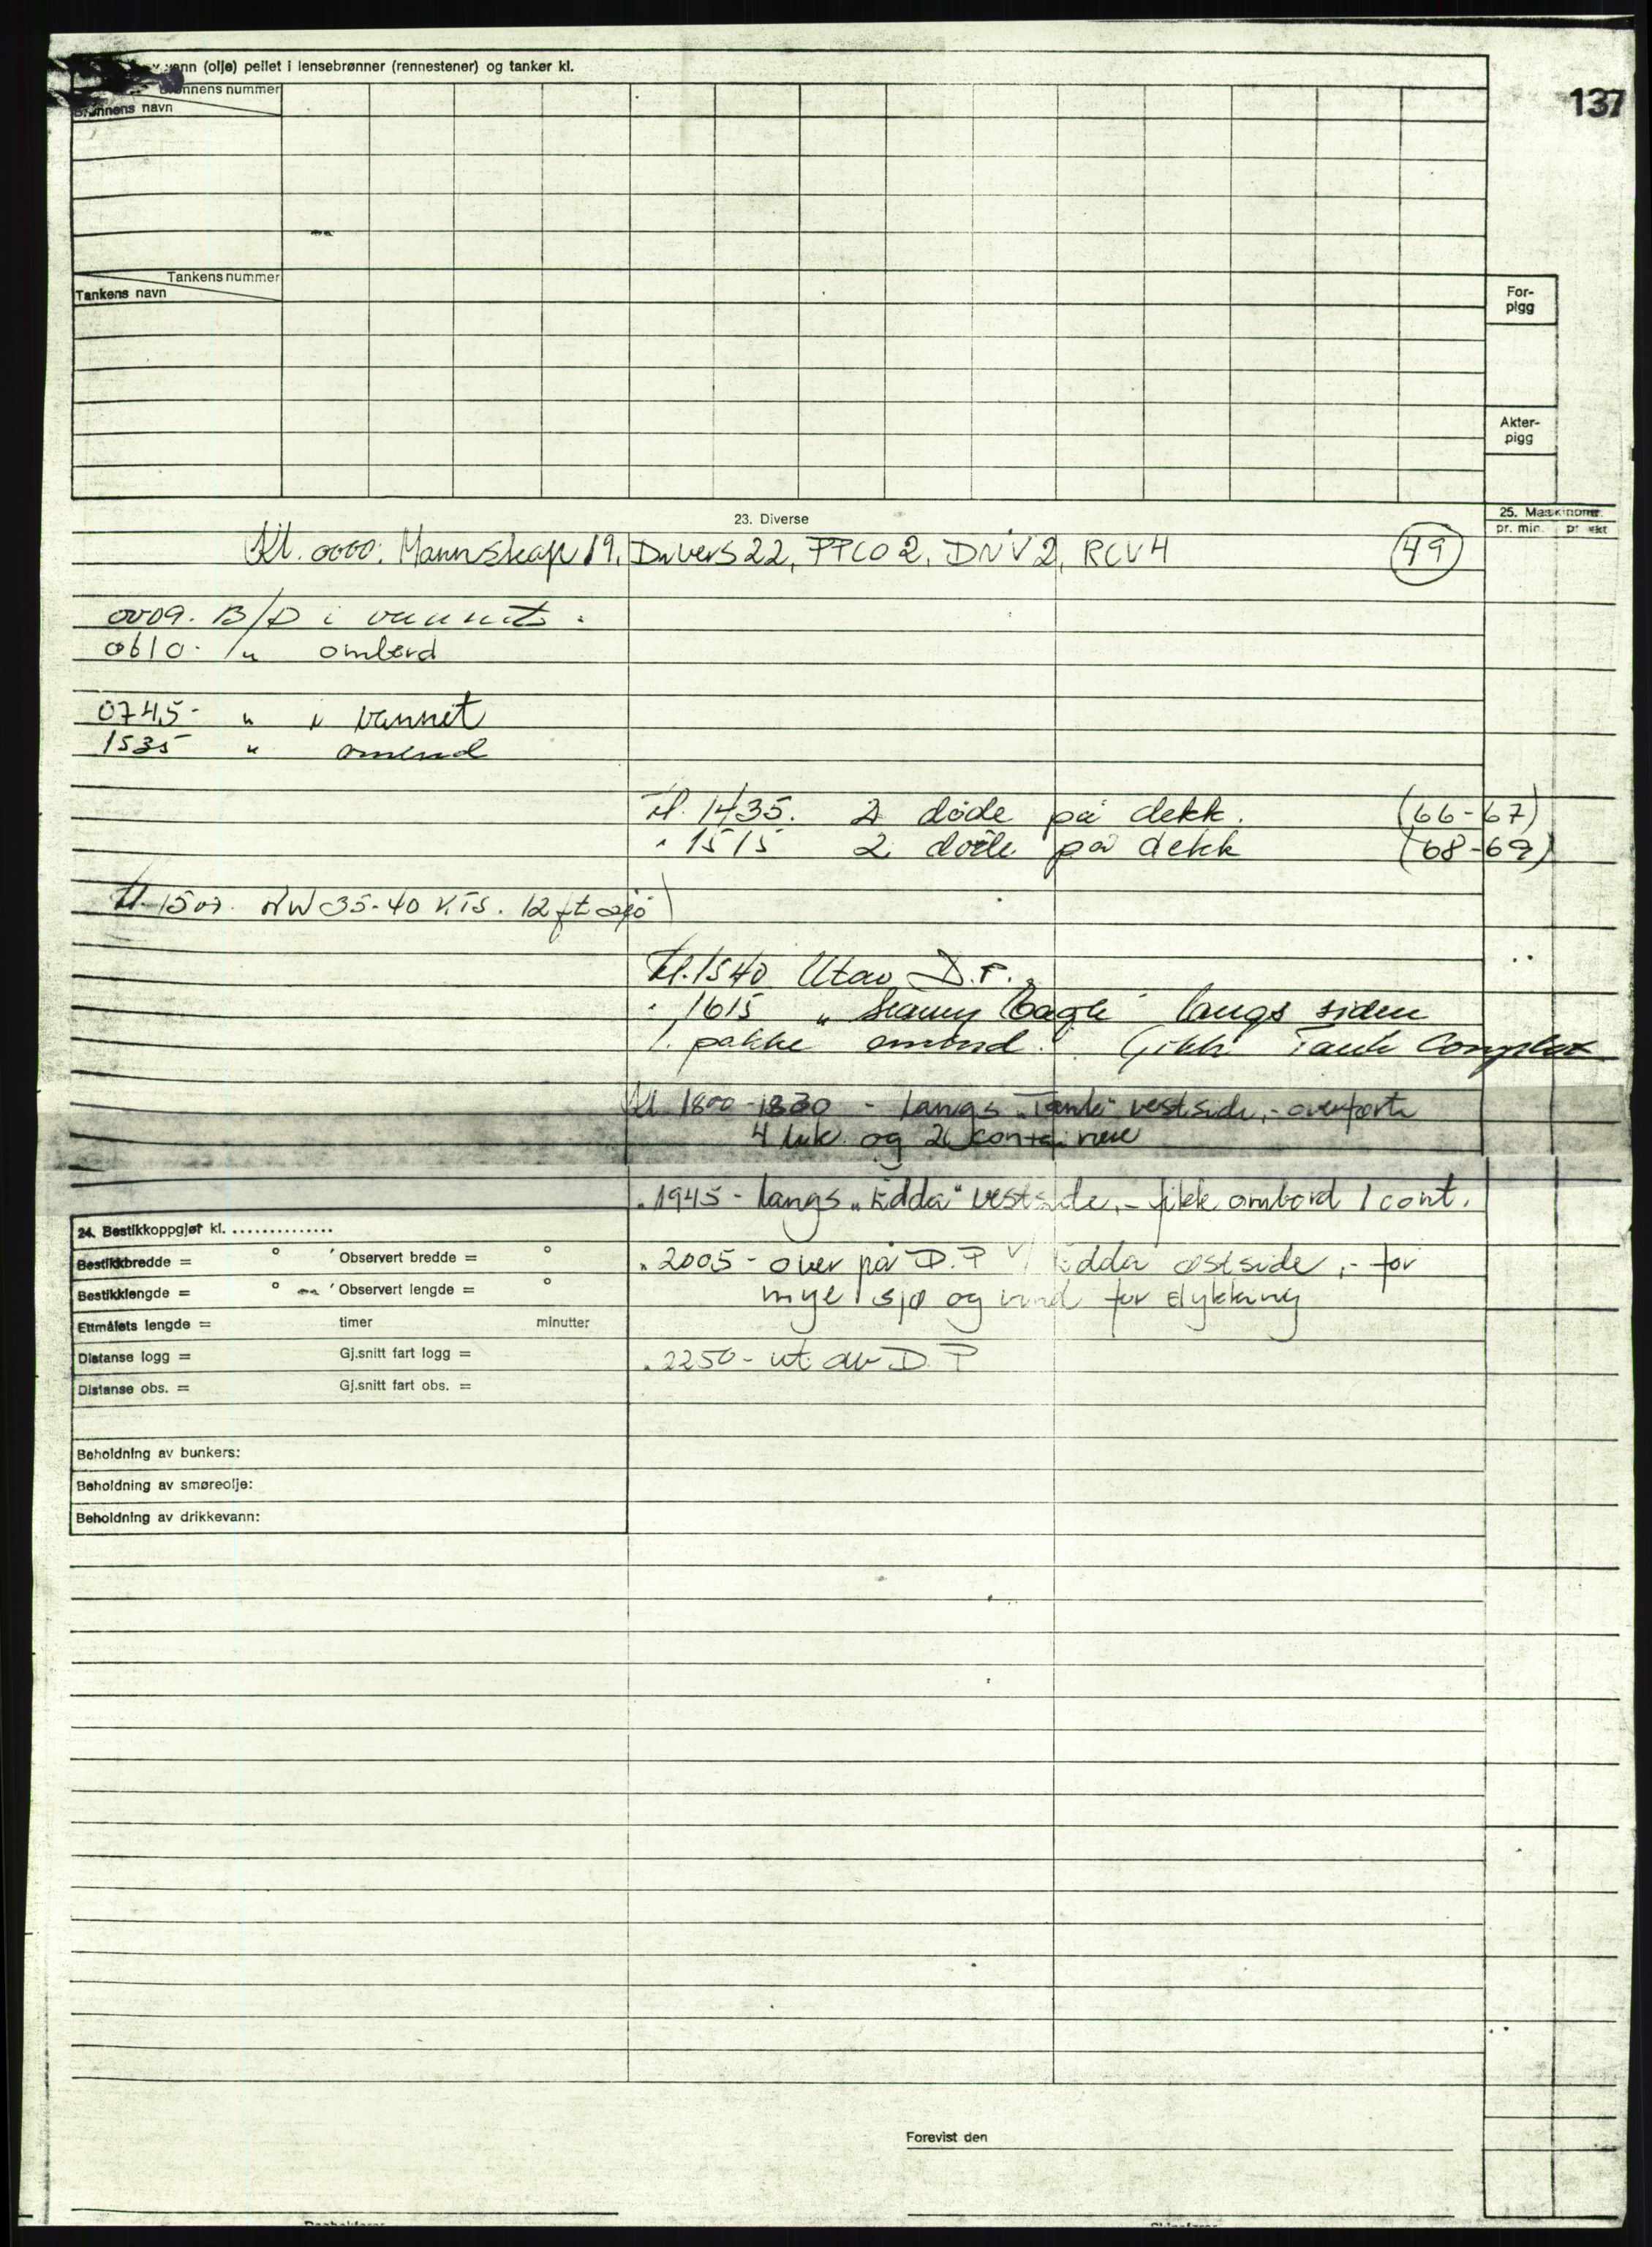 vann (olje) peilet i lensebrønner (rennestener) og tanker kl.
Brønnens nummer
Brønnens navn
137
Tankens nummer
Tankens navn
For-
pigg
Akter-
pigg
23. Diverse
25. Maskinomr.
pr. min. pr. vkt
Kl. 0000. Mannskap 19, Divers 22, PPCO 2, DNV 2, RCV 4 (49)
0009. B/D i vannet.
0610. /" ombord
0745- " i vannet
1535 " ombord
Kl. 1435. 2 døde på dekk. (66-67)
" 1515 2 døde på dekk (68-69)
Kl. 1500. NW 35-40 KTS. 12 ft sjø
Kl. 1540 Utav D.P.
" 1615 " langs siden
1 pakke ombord. Gikk Tank Complex
Kl 1800-1830 - langs "Tank" vestside,- overførte
4 luk og 2 containere
" 1945 - langs "Edda" vestside,- fikk ombord 1 cont.
24. Bestikkoppgjør kl. ..............
Bestikkbredde = ° ' Observert bredde = °
" 2005 - over på D.P v/ Edda østside,- for
Bestikklengde = ° ' Observert lengde = °
mye sjø og vind for dykking
Ettmålets lengde = timer minutter
Distanse logg = Gj.snitt fart logg =
" 2250 - ut av D.P
Distanse obs. = Gj.snitt fart obs. =
Beholdning av bunkers:
Beholdning av smøreolje:
Beholdning av drikkevann:
Forevist den